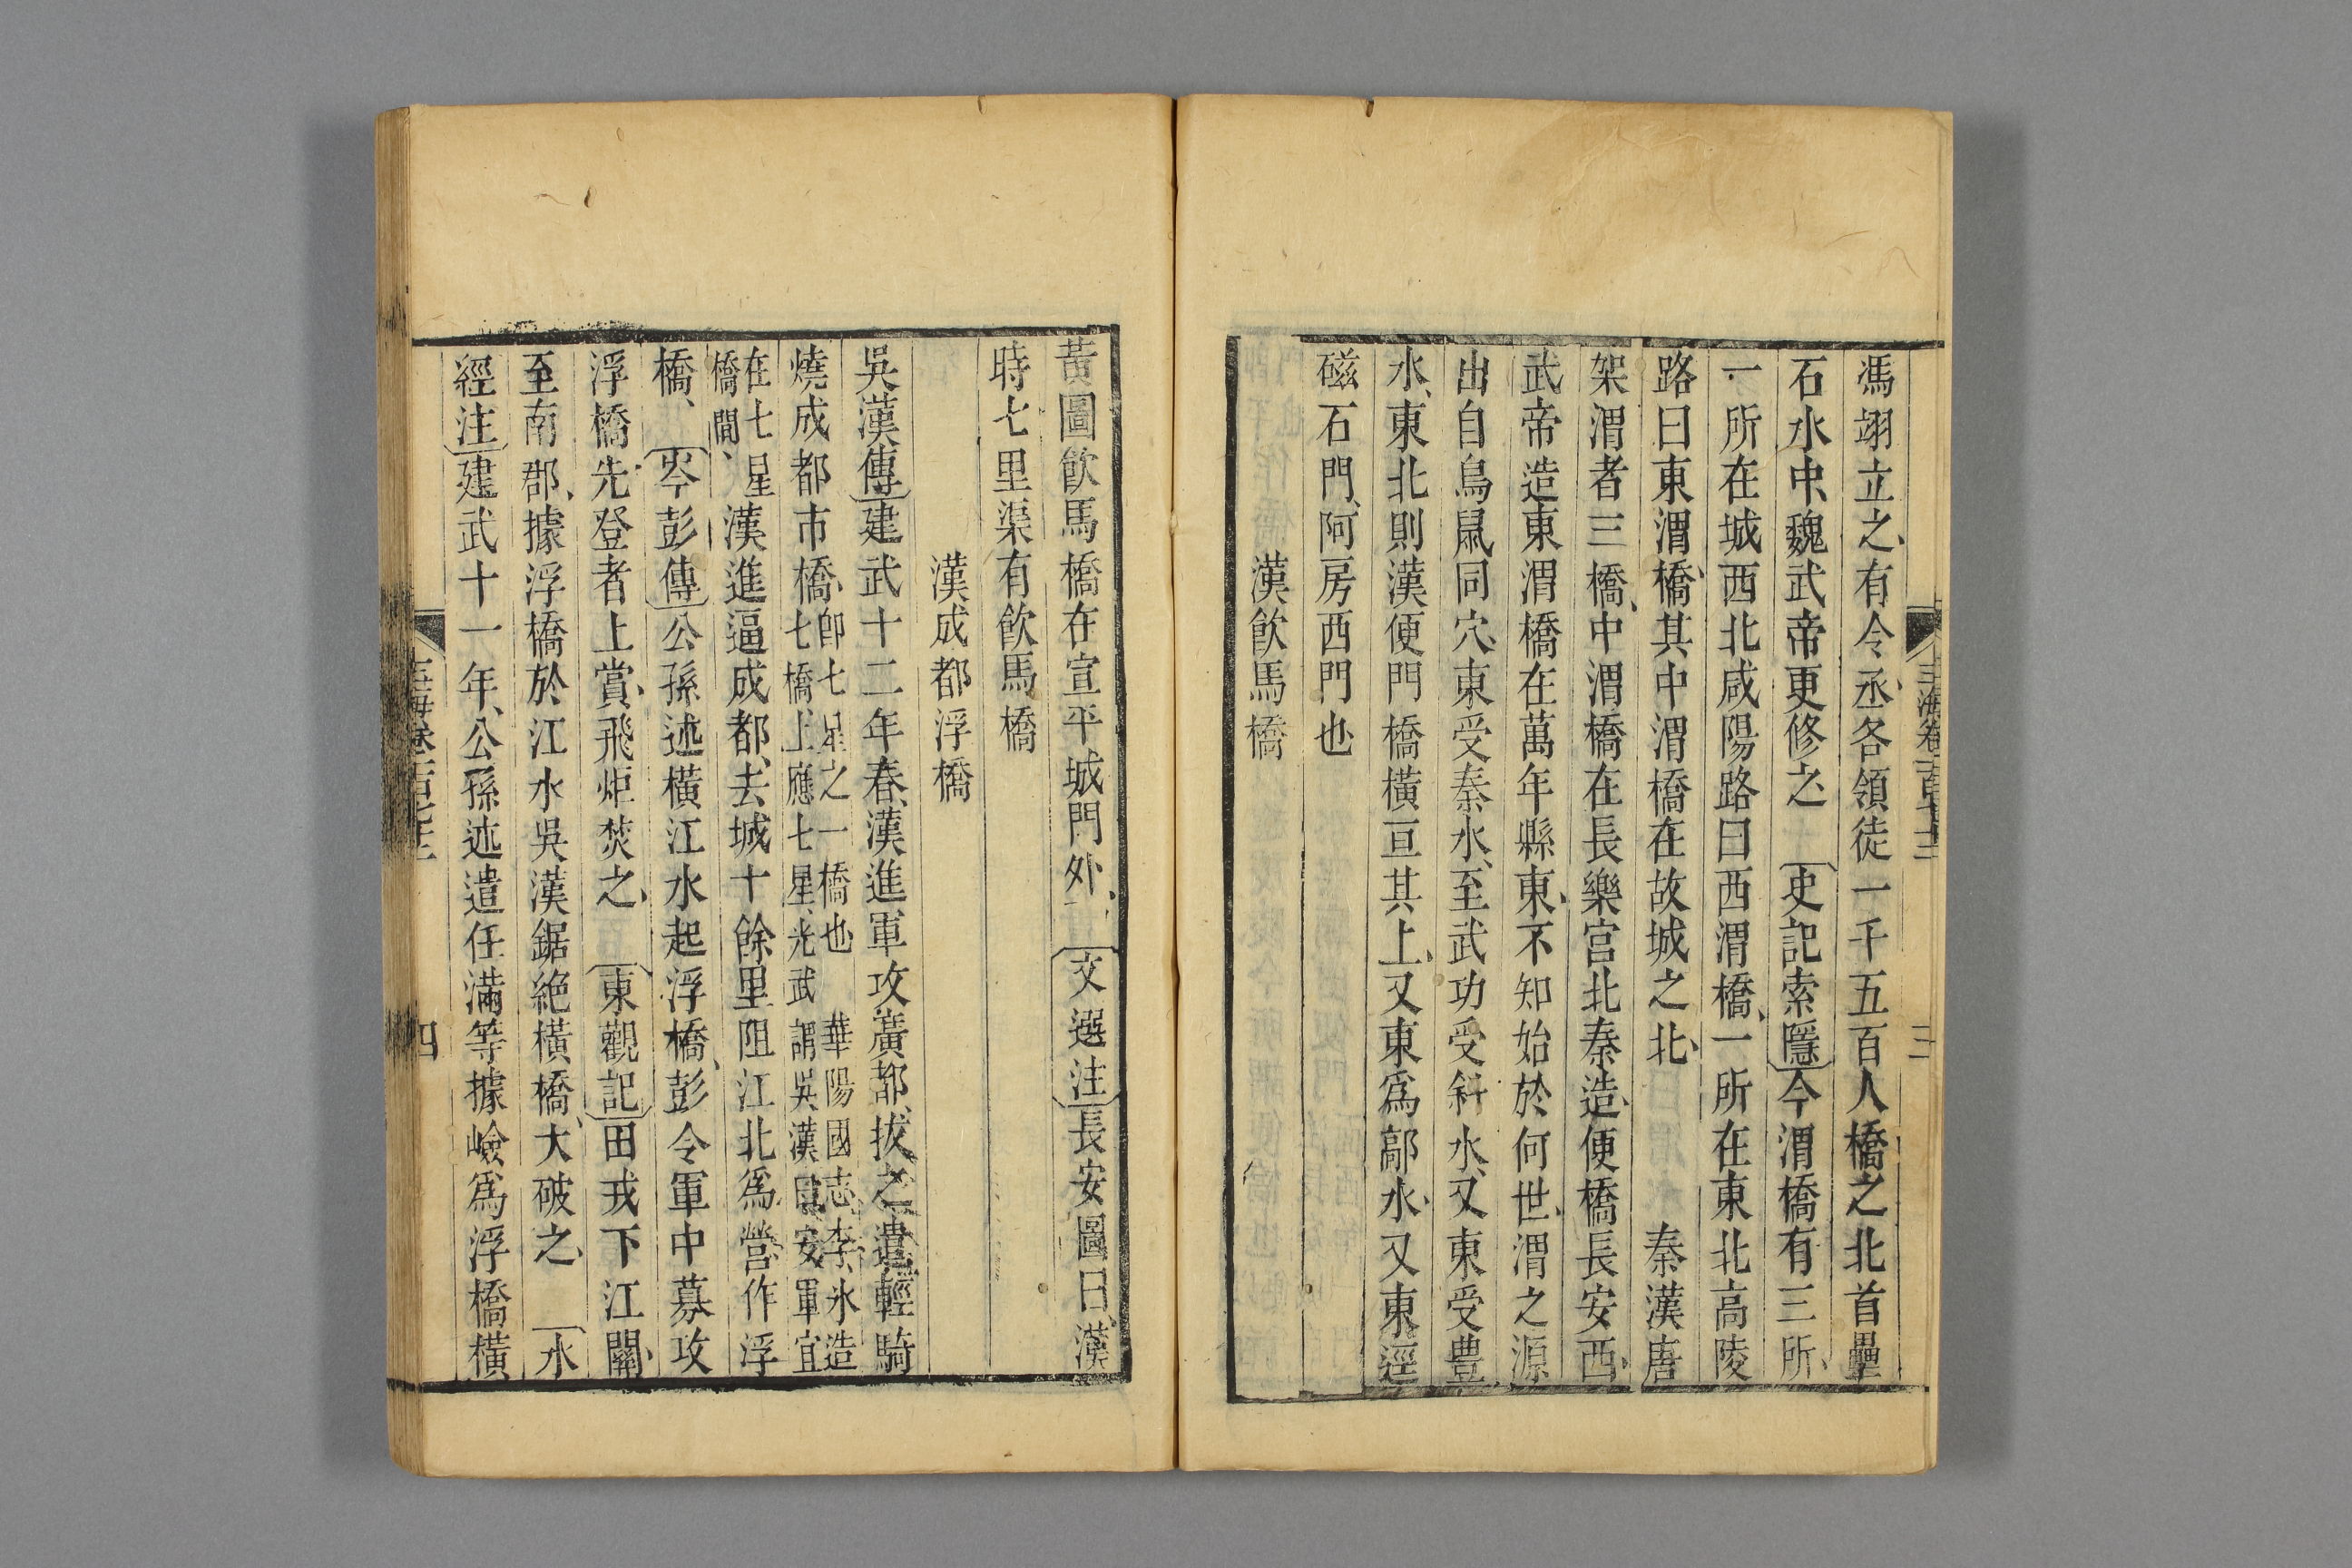 玉海卷一百七十二
三
馮翊立之、有令丞、各領徒一千五百人橋之北首壘
石水中、魏武帝更修之 史記索隱今渭橋有三所、
一所在城西北咸陽路曰西渭橋、一所在東北高陵
路曰東渭橋、其中渭橋在故城之北、 秦漢唐
架渭者三橋、中渭橋在長樂宮北秦造、便橋長安西、
武帝造東渭橋在萬年縣東、不知始於何世、渭之源
出自鳥鼠同穴、東受秦水、至武功受斜水、又東受豊
水、東北則漢便門橋橫亘其上、又東爲鄗水、又東逕
磁石門、阿房西門也
漢飮馬橋
黃圖飮馬橋在宣平城門外、 文選注長安圖曰、漢
時七里渠有飮馬橋
漢成都浮橋
吳漢傳建武十二年春、漢進軍攻廣都、拔之、遣輕騎
燒成都市橋、卽七星之一橋也 華陽國志、李冰造
七橋、上應七星、光武謂吳漢曰、安軍宜
在七星
橋間、漢進逼成都、去城十餘里阻江北爲營、作浮
橋、 岑彭傳公孫述橫江水起浮橋、彭令軍中募攻
浮橋先登者上賞、飛炬焚之、 東觀記田戎下江關、
至南郡、據浮橋於江水吳漢鋸絶橫橋、大破之、 水
經注建武十一年、公孫述遣任滿等據嶮爲浮橋橫
四